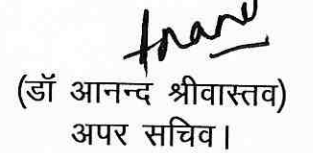 (डॉ आनन्द श्रीवास्तव)
अपर सचिव।